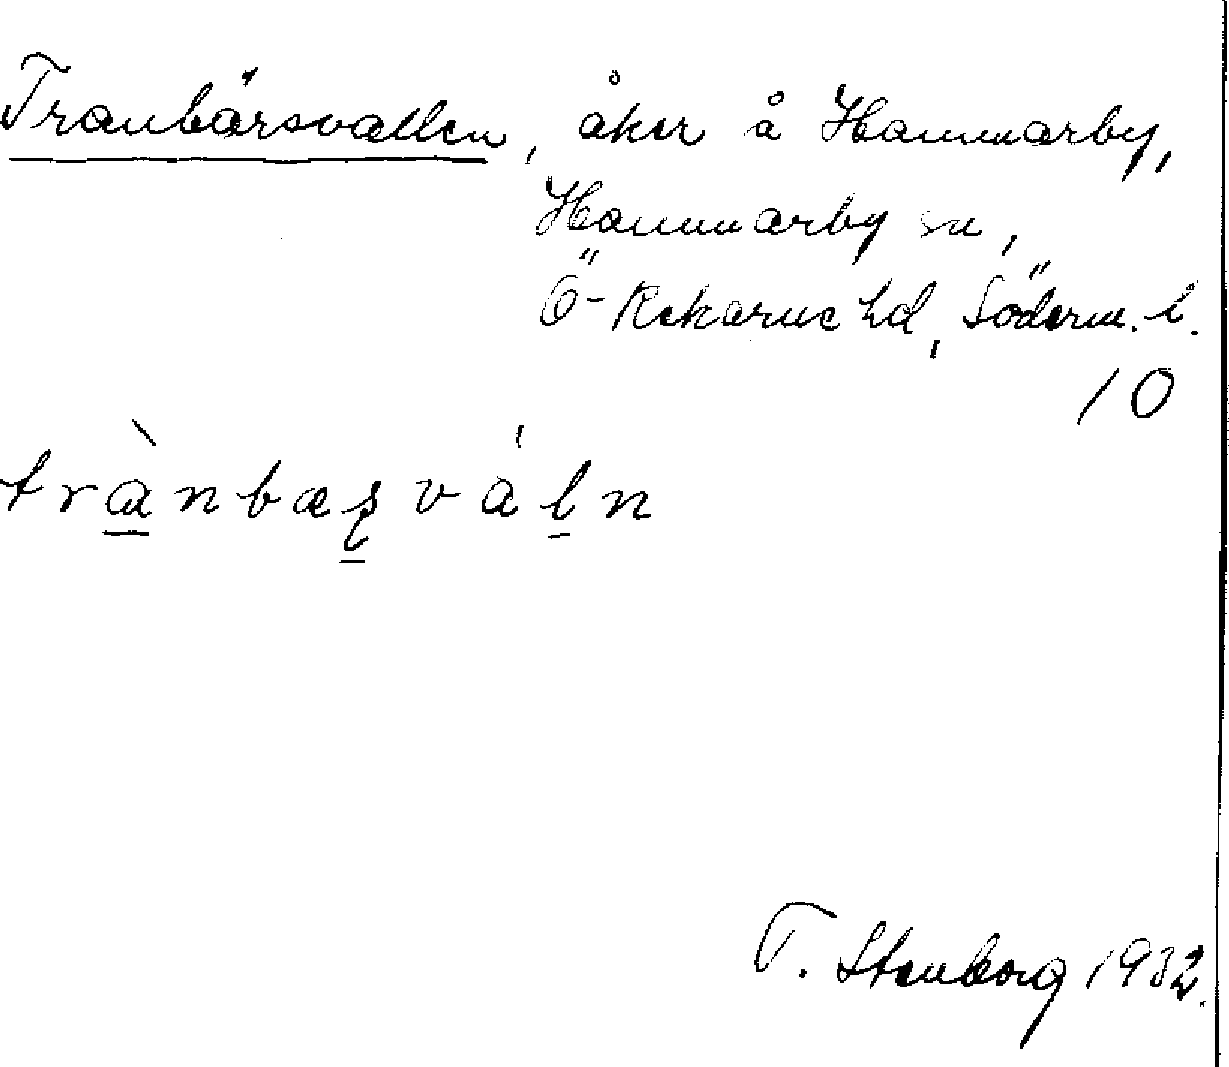 Tranbärsvallen, åker å Hammarby,
Hammarby sn,
Ö-Rekarne hd, Söderm. l.
10
trànbæʂváln
T. Stenborg 1932.